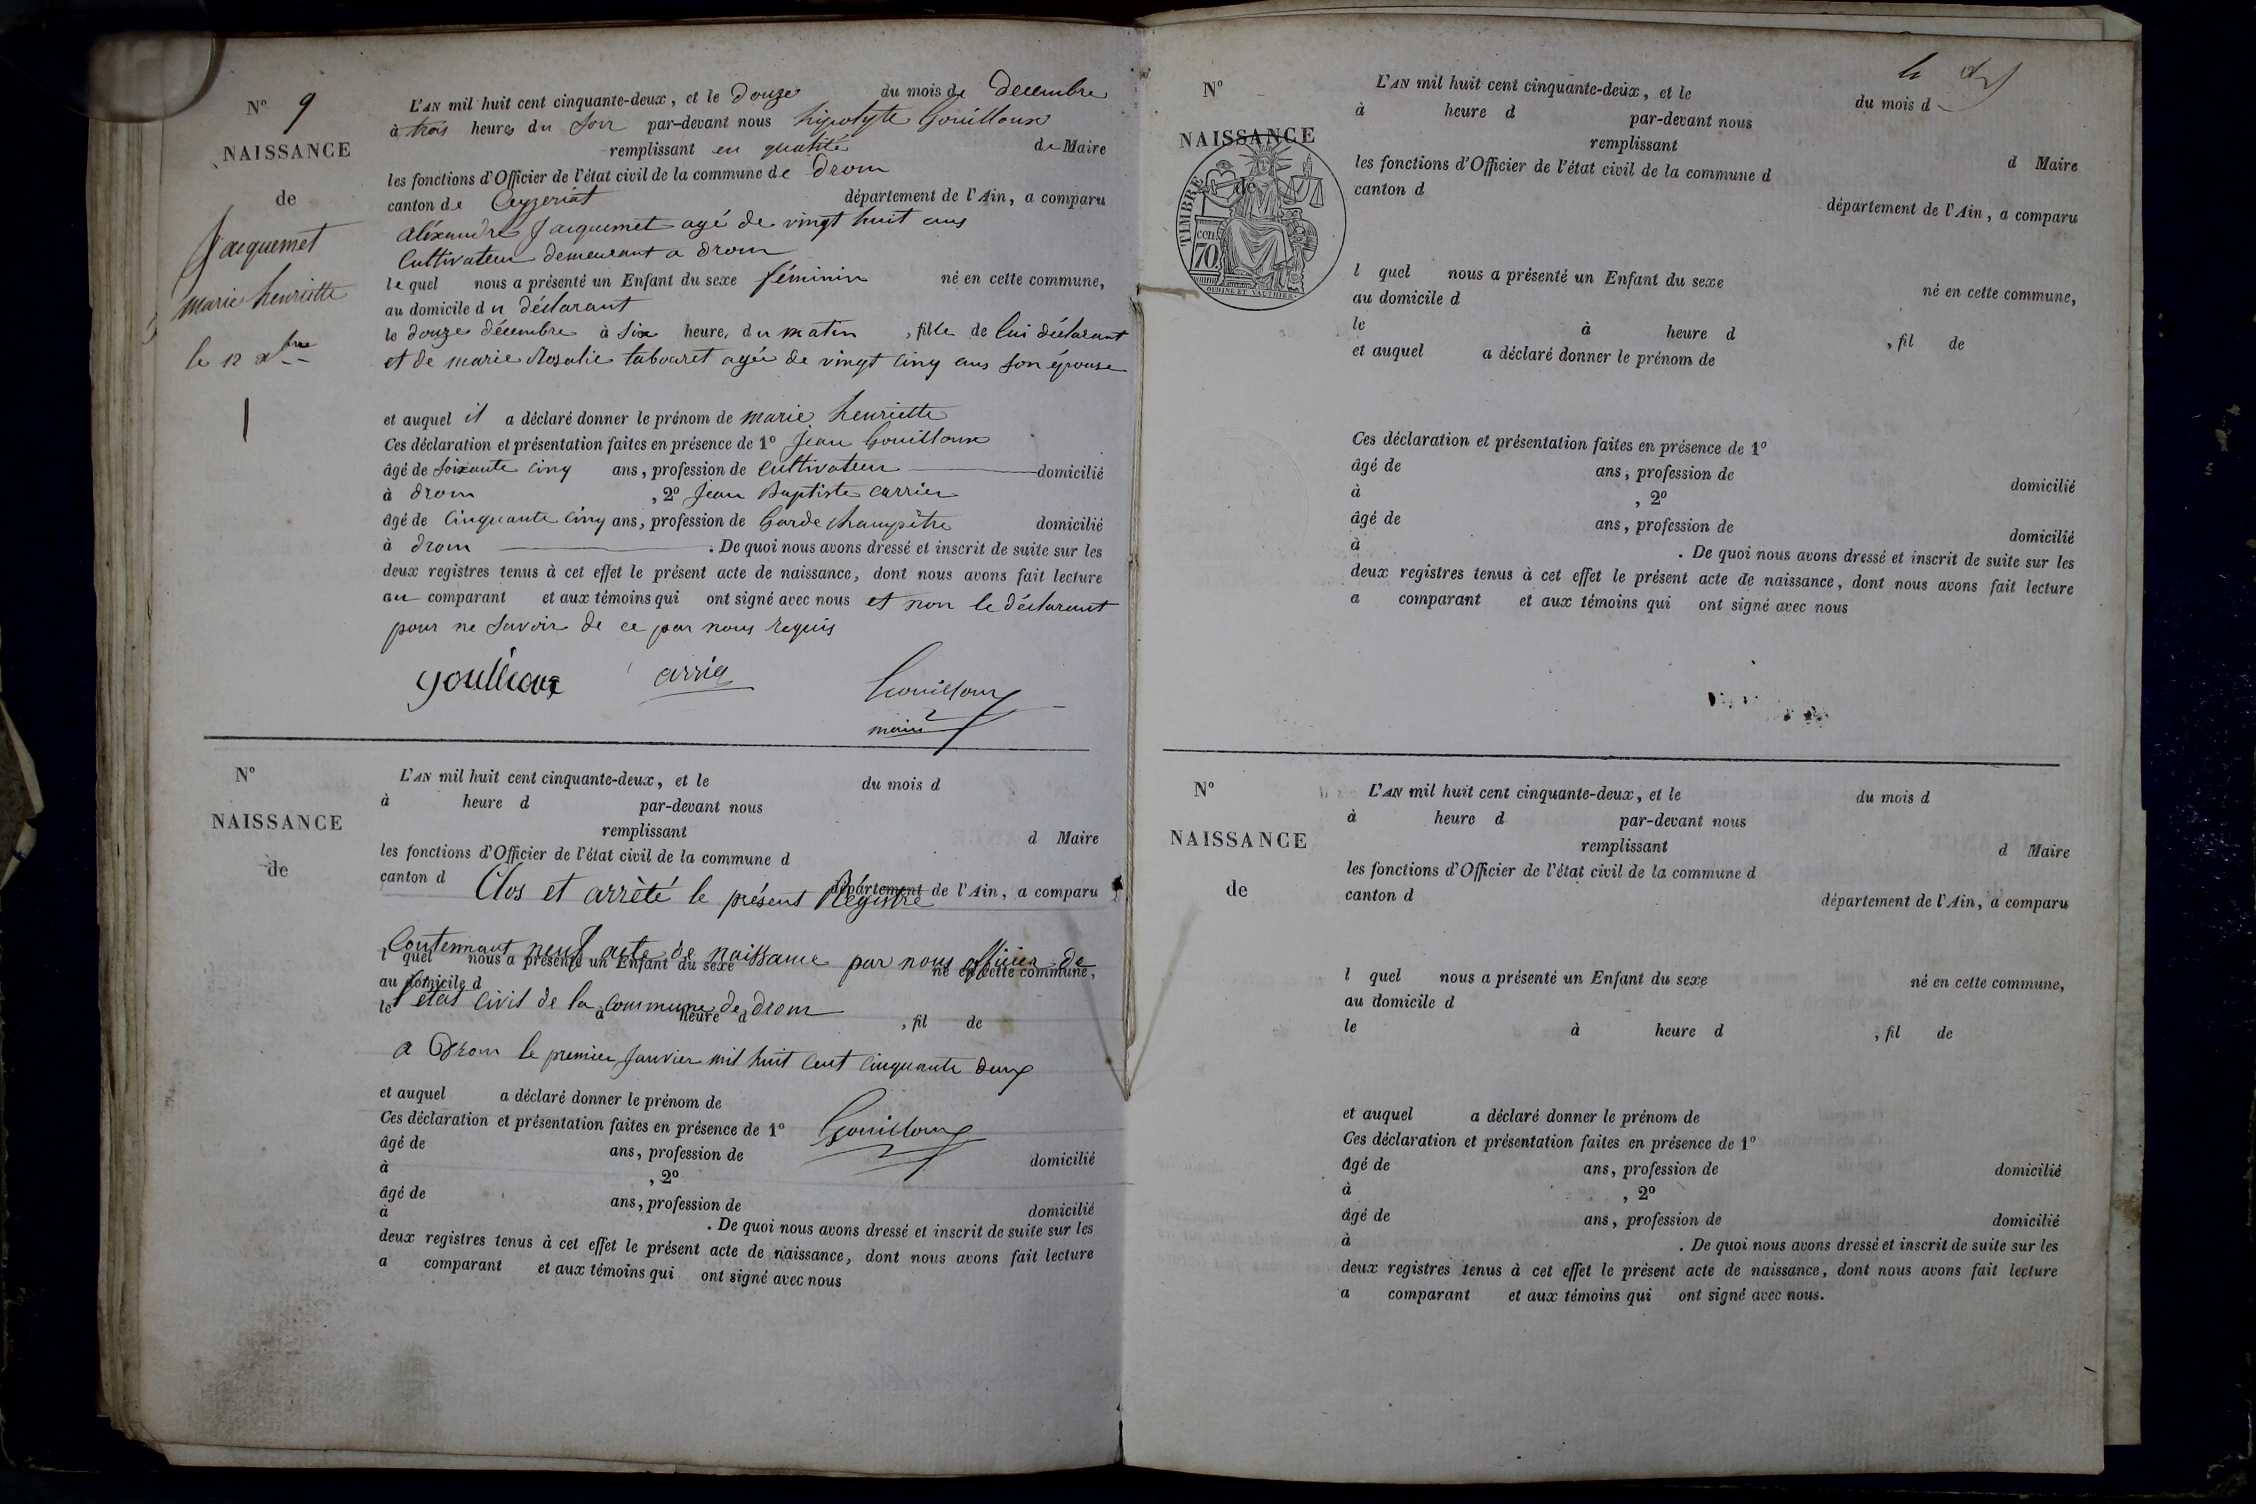 N° 9
NAISSANCE
de
Jacquemet
marie henriette
le 12 xbre
L'AN mil huit cent cinquante-deux, et le douze du mois de decembre
à trois heures du soir par-devant nous hipolyte Gouilloux
remplissant en qualité de Maire
les fonctions d'Officier de l'état civil de la commune de drom
canton de Ceyzeriat département de l'Ain, a comparu
aléxandre Jacquemet agé de vingt huit ans
Cultivateur demeurant a drom
lequel nous a présenté un Enfant du sexe féminin né en cette commune,
au domicile du déclarant
le douze décembre à six heure, du matin, fille de lui déclarant
et de marie Rosalie tabouret agée de vingt cinq ans son épouse
et auquel il a déclaré donner le prénom de marie henriette
Ces déclaration et présentation faites en présence de 1° Jean Gouilloux
âgé de soixante cinq ans, profession de cultivateur domicilié
à drom, 2° Jean Baptiste carrier
âgé de Cinquante cinq ans, profession de Garde champêtre domicilié
à drom. De quoi nous avons dressé et inscrit de suite sur les
deux registres tenus à cet effet le présent acte de naissance, dont nous avons fait lecture
au comparant et aux témoins qui ont signé avec nous et non le déclarant
pour ne savoir de ce par nous requis
Gouilloux
maire
N°
NAISSANCE
de
L'AN mil huit cent cinquante-deux, et le du mois d
à heure d par-devant nous
remplissant d Maire
les fonctions d'Officier de l'état civil de la commune d
canton d département de l'Ain, a comparu
Clos et arrèté le présent Régistre
Contennant neuf acte de naissance par nous officier de
l quel nous a présenté un Enfant du sexe né en cette commune,
au domicile d
l'état civil de la commune de drom
le à heure d, fil de
a Drom le premier Janvier mil huit cent cinquante deux
et auquel a déclaré donner le prénom de
Ces déclaration et présentation faites en présence de 1°
Gouilloux
âgé de ans, profession de domicilié
à, 2°
âgé de ans, profession de domicilié
à. De quoi nous avons dressé et inscrit de suite sur les
deux registres tenus à cet effet le présent acte de naissance, dont nous avons fait lecture
a comparant et aux témoins qui ont signé avec nous
N°
NAISSANCE
de
TIMBRE
70 cen
OUDINÉ ET VAUTHIER
L'AN mil huit cent cinquante-deux, et le du mois d
à heure d par-devant nous
remplissant d Maire
les fonctions d'Officier de l'état civil de la commune d
canton d département de l'Ain, a comparu
l quel nous a présenté un Enfant du sexe né en cette commune,
au domicile d
le à heure d, fil de
et auquel a déclaré donner le prénom de
Ces déclaration et présentation faites en présence de 1°
âgé de ans, profession de domicilié
à, 2°
âgé de ans, profession de domicilié
à. De quoi nous avons dressé et inscrit de suite sur les
deux registres tenus à cet effet le présent acte de naissance, dont nous avons fait lecture
a comparant et aux témoins qui ont signé avec nous
N°
NAISSANCE
de
L'AN mil huit cent cinquante-deux, et le du mois d
à heure d par-devant nous
remplissant d Maire
les fonctions d'Officier de l'état civil de la commune d
canton d département de l'Ain, a comparu
l quel nous a présenté un Enfant du sexe né en cette commune,
au domicile d
le à heure d, fil de
et auquel a déclaré donner le prénom de
Ces déclaration et présentation faites en présence de 1°
âgé de ans, profession de domicilié
à, 2°
âgé de ans, profession de domicilié
à. De quoi nous avons dressé et inscrit de suite sur les
deux registres tenus à cet effet le présent acte de naissance, dont nous avons fait lecture
a comparant et aux témoins qui ont signé avec nous.